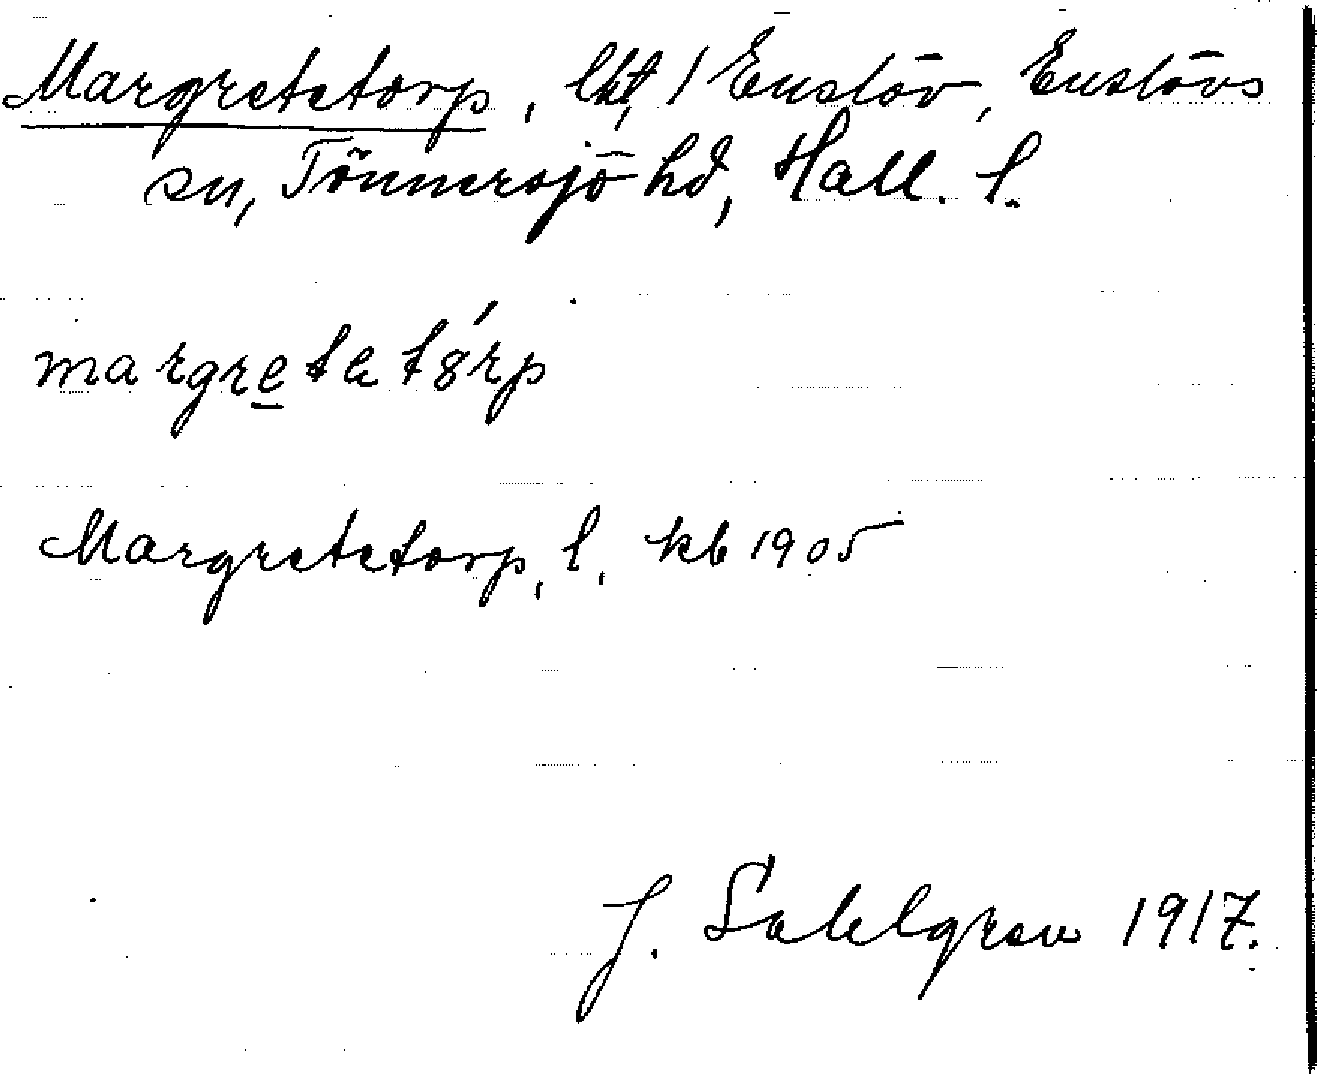 Margretetorp, lht, 1 Enslöv, Enslövs
sn, Tönnersjö hd, Hall. l.
margretatörp
Margretetorp, l, kb 1905
J. Sahlgren 1917.